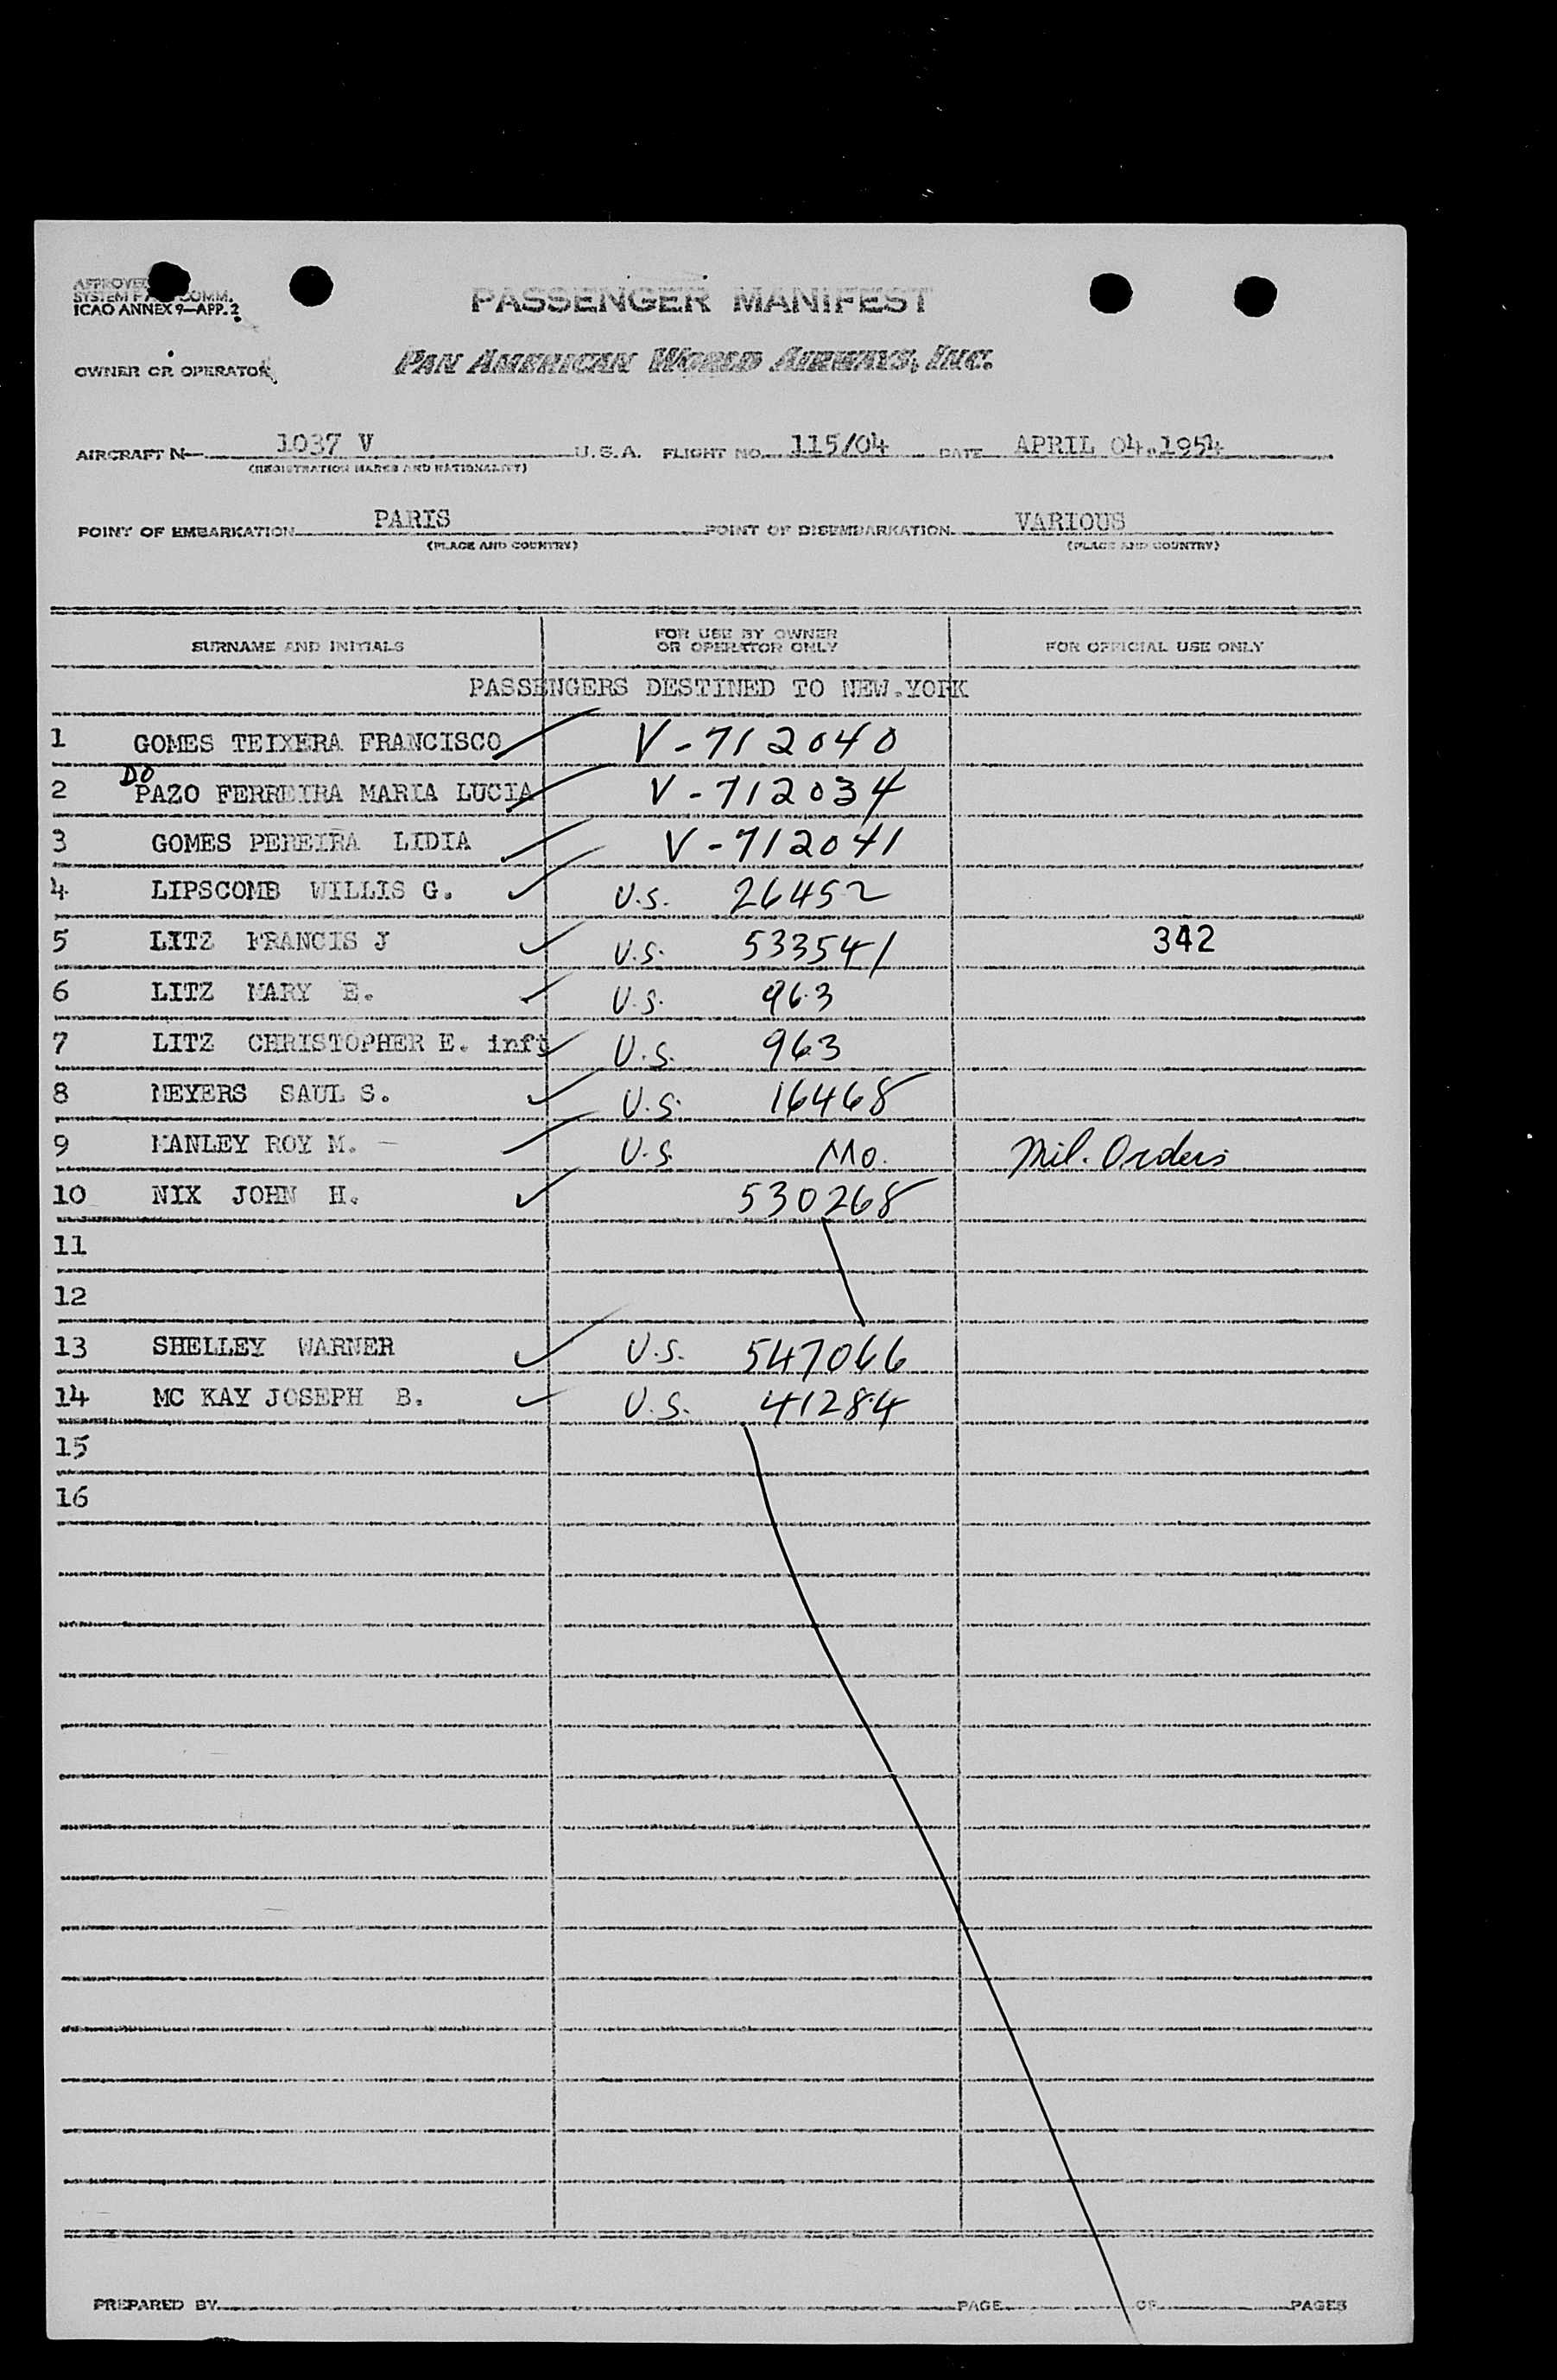 APPROVED
SYSTEM COMM.
ICAO ANNEX 9-APP. 2
PASSENGER MANIFEST
OWNER OR OPERATOR PAN AMERICAN WORLD AIRWAYS, INC.
AIRCRAFT N- 1037 V U.S.A. FLIGHT NO. 115/04 DATE APRIL 04.1954
(REGISTRATION MARKS AND NATIONALITY)
POINT OF EMBARKATION PARIS POINT OF DISEMBARKATION VARIOUS
(PLACE AND COUNTRY) (PLACE AND COUNTRY)
SURNAME AND INITIALS FOR USE BY OWNER OR OPERATOR ONLY FOR OFFICIAL USE ONLY
PASSENGERS DESTINED TO NEW.YORK
1 GOMES TEIXERA FRANCISCO V-712040
2 DO PAZO FERREIRA MARIA LUCIA V-712034
3 GOMES PEREIRA LIDIA V-712041
4 LIPSCOMB WILLIS G. U.S. 26452
5 LITZ FRANCIS J U.S. 533541 342
6 LITZ MARY E. U.S. 963
7 LITZ CHRISTOPHER E. inft U.S. 963
8 MEYERS SAUL S. U.S. 16468
9 MANLEY ROY M. - U.S. MO. Mil. Orders
10 NIX JOHN H. 530268
11
12
13 SHELLEY WARNER U.S. 547066
14 MC KAY JOSEPH B. U.S. 41284
15
16
PREPARED BY PAGE OF PAGES